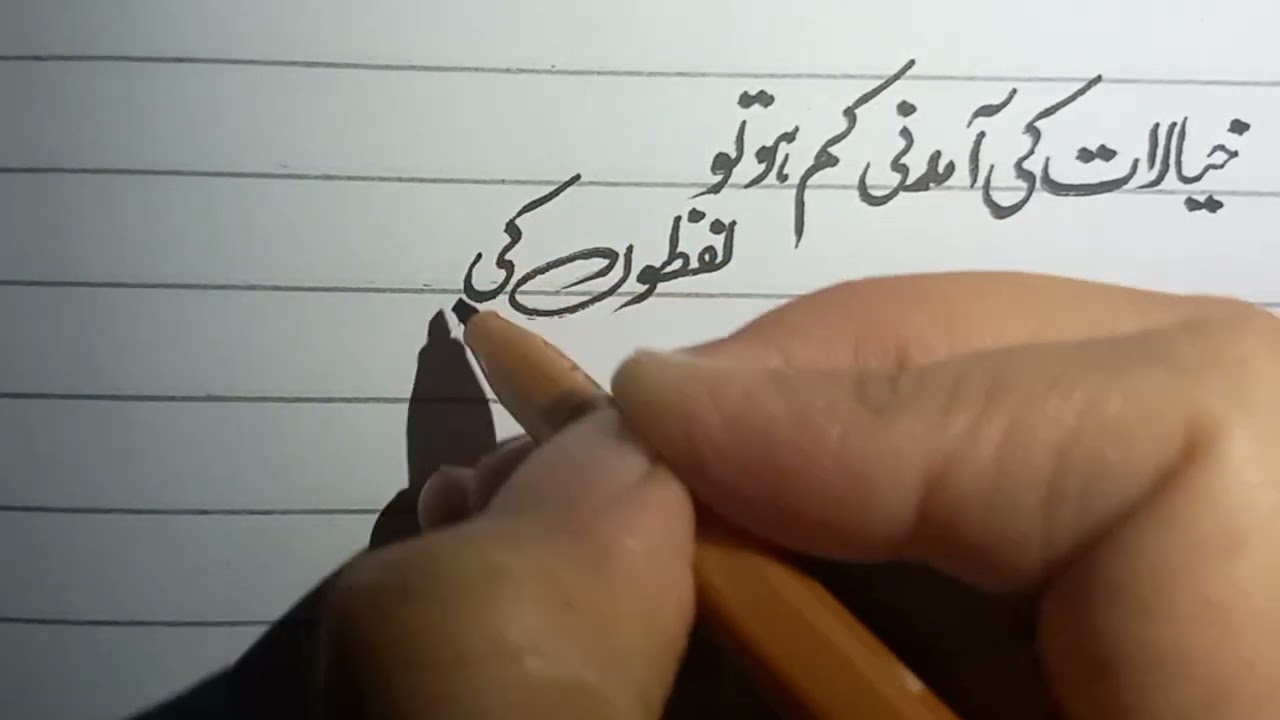 خیالات کی آمدنی کم ہو تو
لفظوں کی